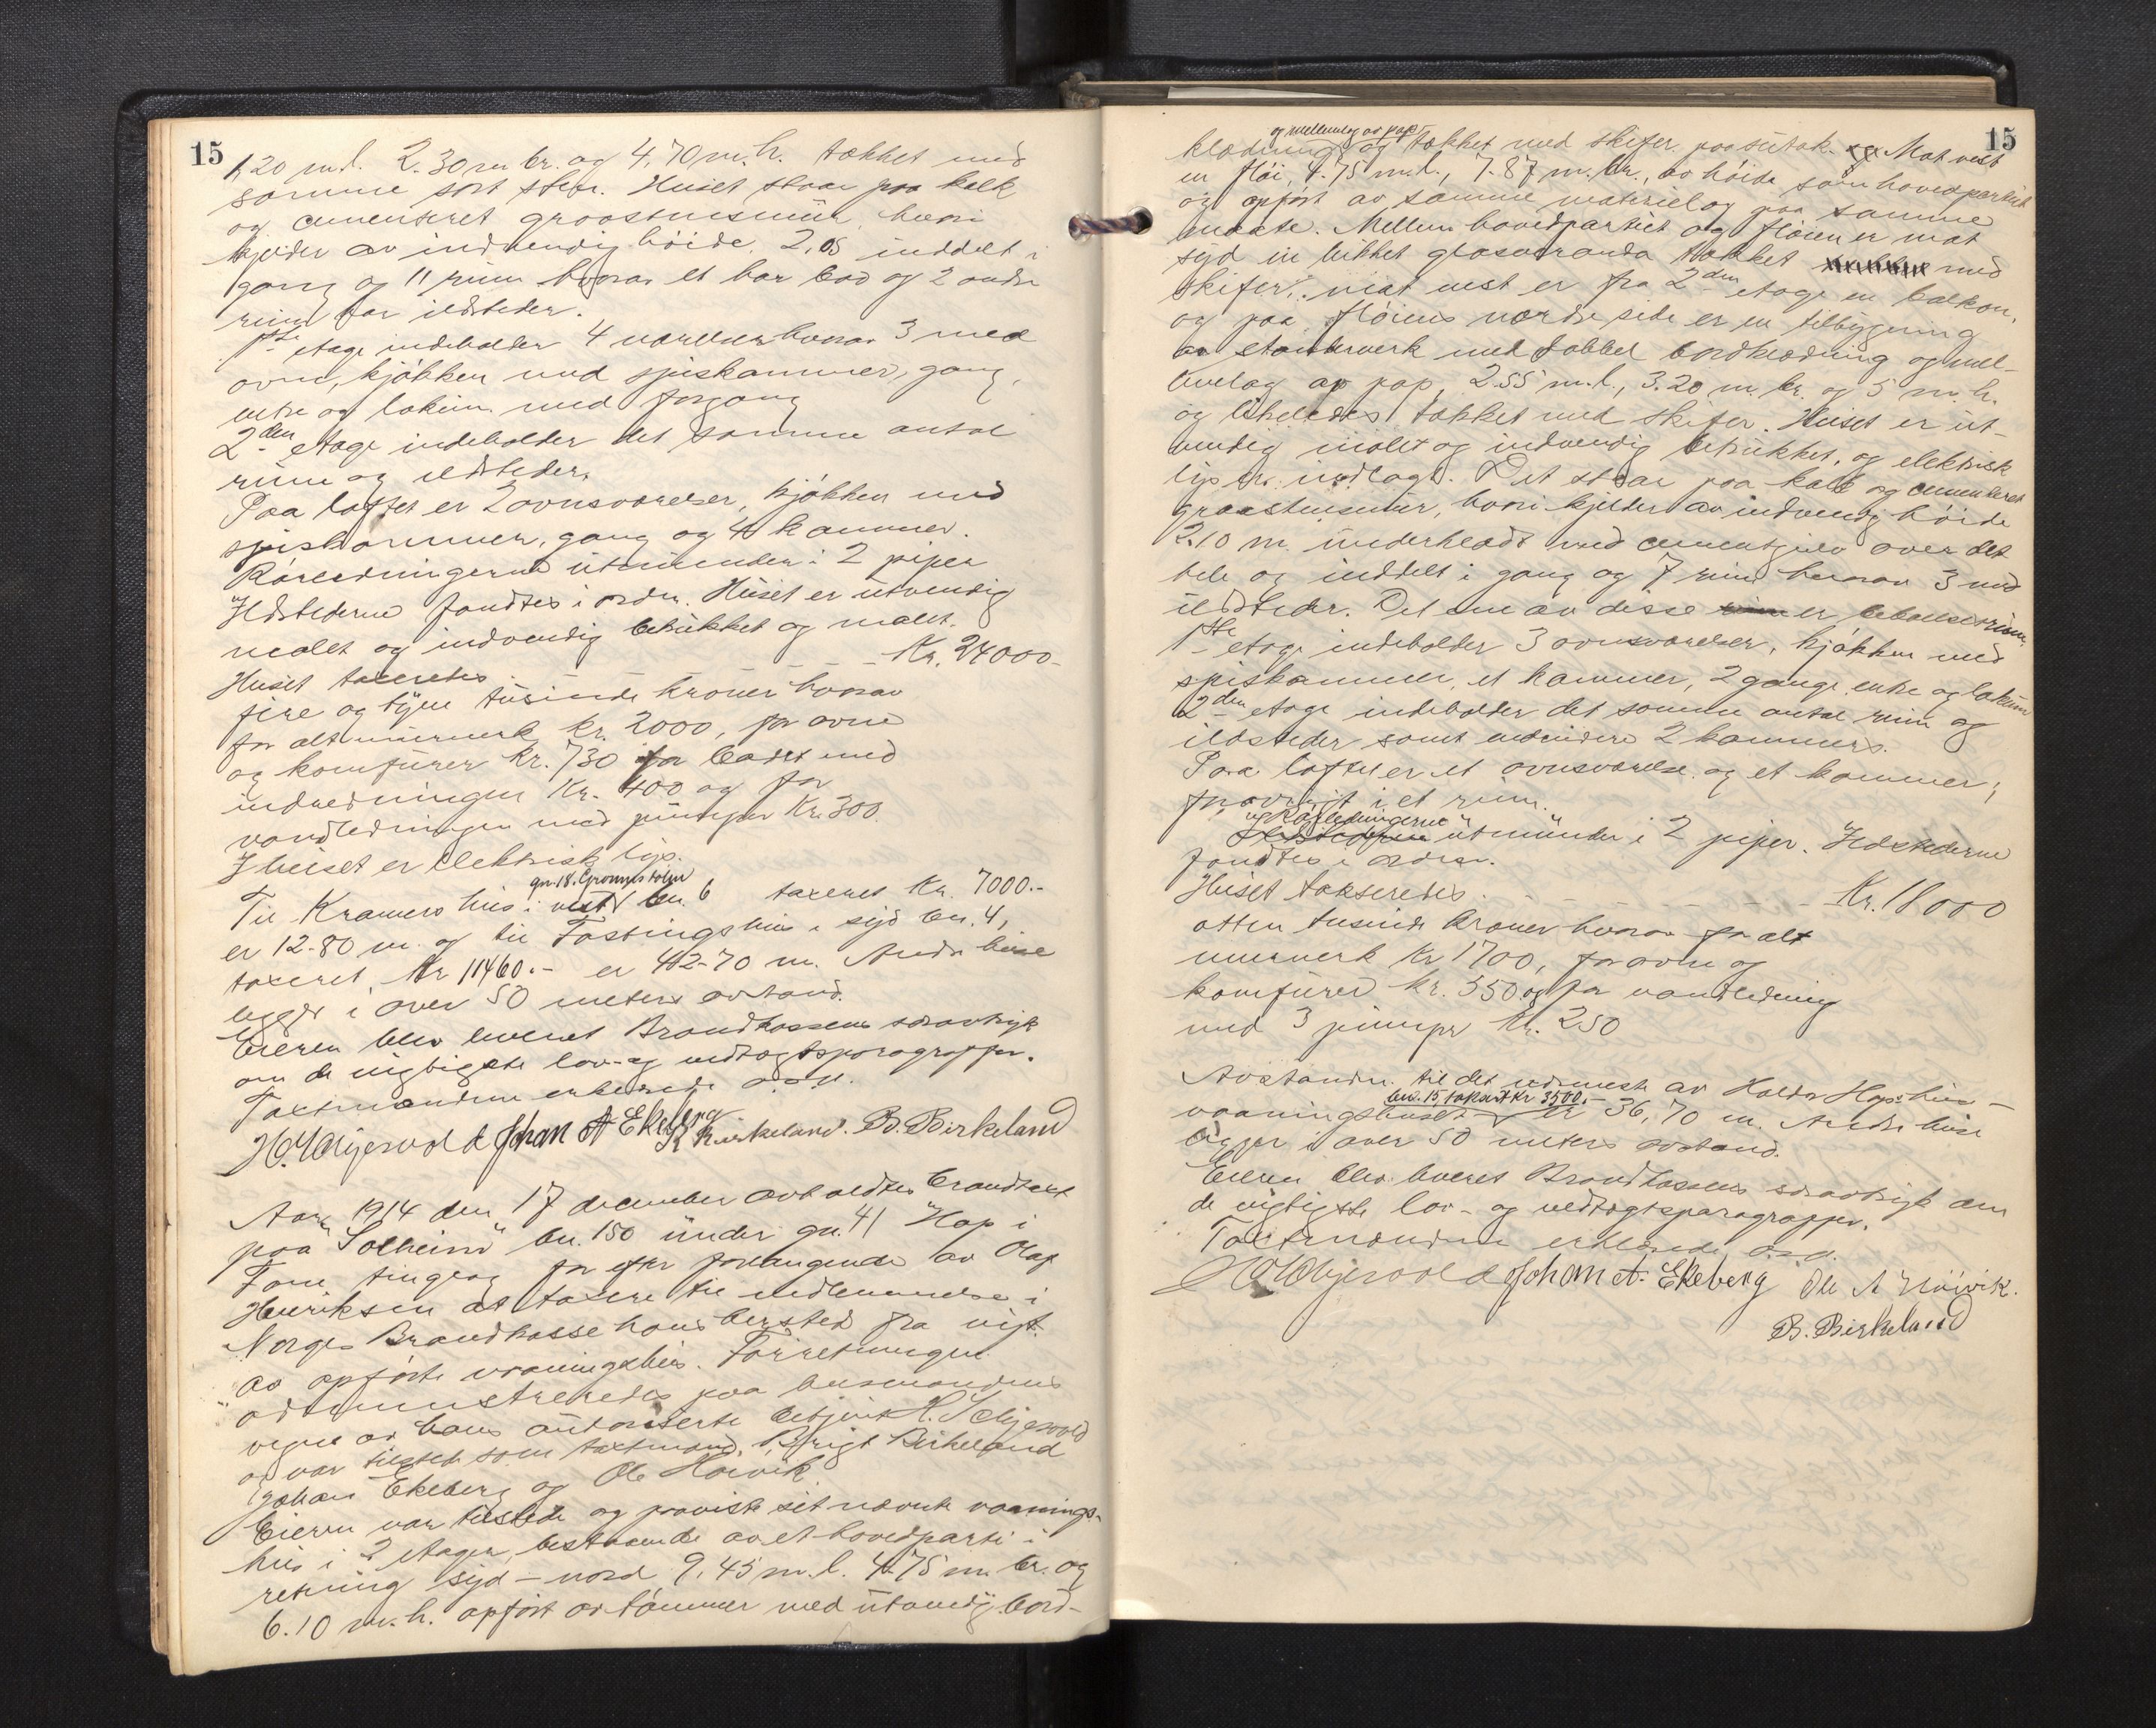 15
1,20 m.l. 2.30 m br. og 4,70 m.h. tækket med
samme sort sten. Huset staar paa kalk
og cementeret graastensmur, hvori
kjelder av indvendig höide 2,05 inddelt i
gang og 11 rum hvorav et har bad og 2 andre
rum har ildsteder.
1ste etage indeholder 4 værelser hvorav 3 med
ovne, kjökken med spiskammer, gang,
entre og lokum med forgang
2den etage indeholder det samme antal
rum og ildsteder.
Paa loftet er 2 ovnsværelser, kjökken med
spiskammer, gang og 4 kammer.
Rörledningerne utmunder i 2 piper
Ildstederne fandtes i orden. Huset er utvendig
malet og indvendig betrukket og malet.
Huset taxeredes - - - - Kr. 24000-
fire og tyve tusinde kroner hvorav
for alt murverk kr. 2000, for ovne
og komfurer kr. 730 for badet med
indredningen Kr. 400 og for
vandledningen med pumper Kr. 300.
I huset er elektrisk lys.
gn. 18.
Til Kramers hus i vest bn. 6 taxeret Kr. 7000.-
er 12-80 m og til Fastings hus i syd bn. 4,
taxeret Kr 11460.- er 42-70 m. Andre huse
ligger i over 50 meters avstand.
Eieren blev leveret Brandkassens særavtryk
om de vigtigste lov- og vedtægtsparagrapher.
Taxtmændene erklærede
Johan A Ekeberg K Birkeland. B. Birkeland
Aar 1914 den 17 december avholdtes brandtaxt
paa "Solheim" bn. 150 under gn. 41 Hop i
Fane tinglag for efter forlangende av Olaf
Henriksen at taxere til indlemmelse i
Norges Brandkasse hans bersted fra nyt
av opförte vaaningshus. Forretningen
administreredes paa lensmandens
vegne av hans autoriserte betjent
og var tilstede som taxtmænd. Brigt Birkeland
Johan Ekeberg og Ole Höivik
Eieren var tilstede og paaviste sit nævnte vaanings-
hus i 2 etager, bestaaende av et hovedparti i
retning syd – nord 9,45 m.l. 4.75 m. br. og
6.10 m.h. opfört av tömmer med utvendig bord-
15
og mellemlag av pap
klædning og tækket med skifer paa sutak. Mot vest
en flöi, 4.75 m.l., 7.87 m. br., av höide som hovedpartiet
og opfört av samme material og paa samme
maate. Mellem hovedpartiet og flöien er mot
syd en lukket glasveranda tækket med
skifer; mot vest er fra 2den etage en balkon,
og paa flöiens nordre side er en tilbygning
av standerverk med dobbel bordklædning og mel-
lemlag av pap, 2.55 m.l., 3.20 m. br. og 5 m.h.
og likeledes tækket med skifer. Huset er ut-
vendig malet og indvendig betrukket, og elektrisk
lys er indlagt. Det staar paa kalk og cementeret
graastensmur, hvori kjelder av indvendig höide
2.10 m. underklædt med cementgulv over det
hele og inddelt i gang og 7 rum hvorav 3 med
ildsteder. Det ene av disse er beboelsesrum
1ste etage indeholder 3 ovnsværelser, kjökken med
spiskammer, et kammer, 2 gange, entre og lokum
2den etage indeholder det samme antal rum og
ildsteder samt endvidere 2 kammers.
Paa loftet er et ovnsværelse og et kammer;
forövrigt i et rum.
Rörledningerne
utmunder i 2 piper. Ildstederne
fandtes i orden.
Huset takseredes - - - - - - - Kr. 18000
atten tusinde kroner hvorav for alt
murverk Kr 1700, for ovne og
komfurer kr. 550 og for vandledning
med 3 pumper Kr. 250
Avstanden til det nærmeste av Halds Hops hus –
bn. 15, takseret Kr 3500.-
vaaningshuset – er 36,70 m. Andre huse
ligger i over 50 meters avstand.
Eieren blev leveret Brandkassens særavtryk om
de vigtigste lov- og vedtægtsparagrapher.
Taxtmændene erklærede
Johan A. Ekeberg Ole A Höivik.
B. Birkeland